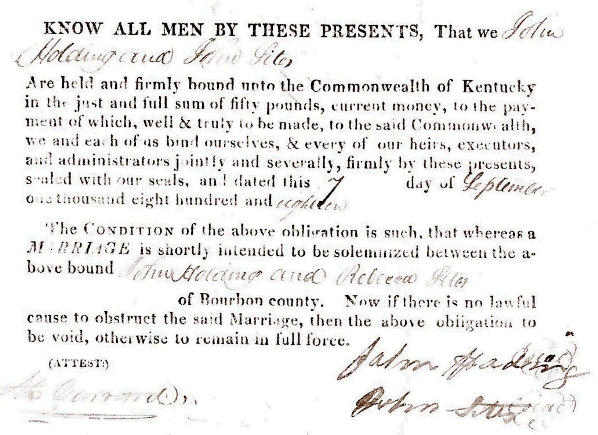 KNOW ALL MEN BY THESE PRESENTS, That we John
Holding and John Sites
Are held and firmly bound unto the Commonwealth of Kentucky
in the just and full sum of fifty pounds, current money, to the pay-
ment of which, well & truly to be made, to the said Commonwealth,
we and each of us bind ourselves, & every of our heirs, executors,
and administrators jointly and severally, firmly by these presents,
sealed with our seals, and dated this 7 day of September
one thousand eight hundred and eighteen
The CONDITION of the above obligation is such, that whereas a
MARRIAGE is shortly intended to be solemnized between the a-
bove bound John Holding and Rebecca Sites
of Bourbon county. Now if there is no lawful
cause to obstruct the said Marriage, then the above obligation to
be void, otherwise to remain in full force.
(ATTEST:)
John
John Sites